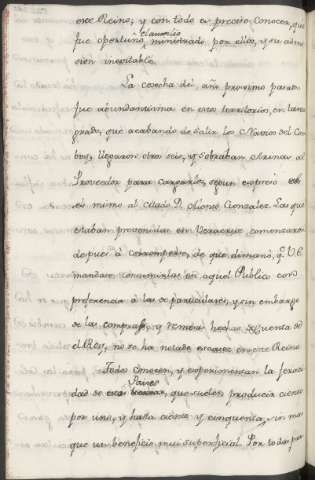 este Reino; y con todo es preciso conocer, que
fue oportuno el ministrado por ellos, y su admi
sion inevitable.
La cosecha del año proximo pasado
fue abundantisima en estos territorios, en tanto
grado, que acabando de salir los Navios del Com
boy, llegaron otros seis, y sobraban Arinas al
Proveedor para cargarles, segun expreso
el mismo al citado D. Alonso Gonzalez. Las que
estaban prevenidas en Veracruz comenzaron
despues á corromperse, de que dimanó, q.e V.E.
mandase consumirlas en aquel Publico con
preferencia á las de particulares, y sin embargo
de las compras, y demas hechas de cuenta de
el Rey, no se ha notado escasez en este Reino.
Todos conocen, y experimentan la feraci
dad de estas tierras, que suelen producir ciento
por uno, y hasta ciento y cinquenta, sin mas
que un beneficio mui superficial. Por todas par